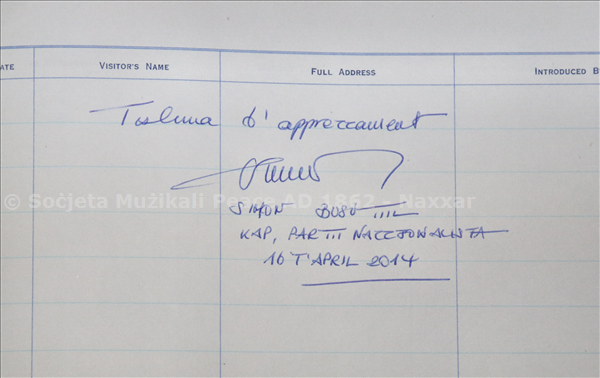 ATE VISITOR'S NAME FULL ADDRESS INTRODUCED B
Tislima b' apprezzament
© Soċjeta Mużikali Peace AD 1862 - Naxxar
SIMON BUSUTTIL
KAP, PARTIT NAZZJONALISTA
16 T'APRIL 2014